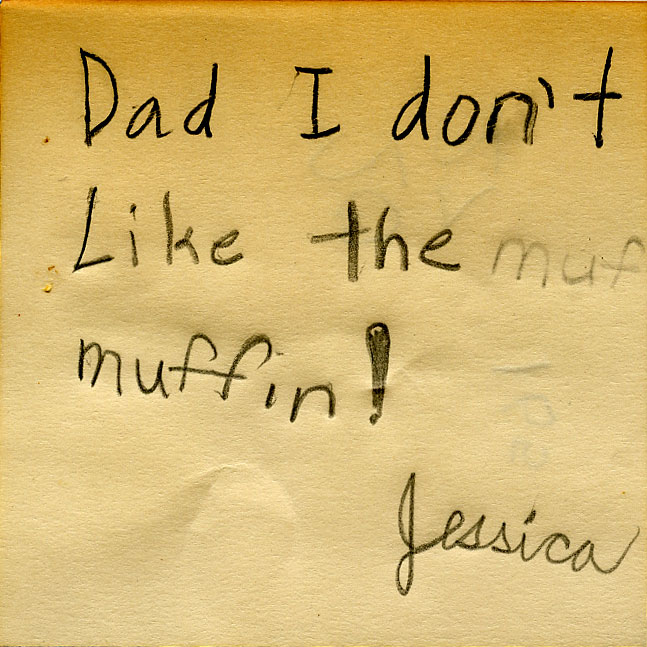 Dad I don't
Like the muf
muffin!
Jessica